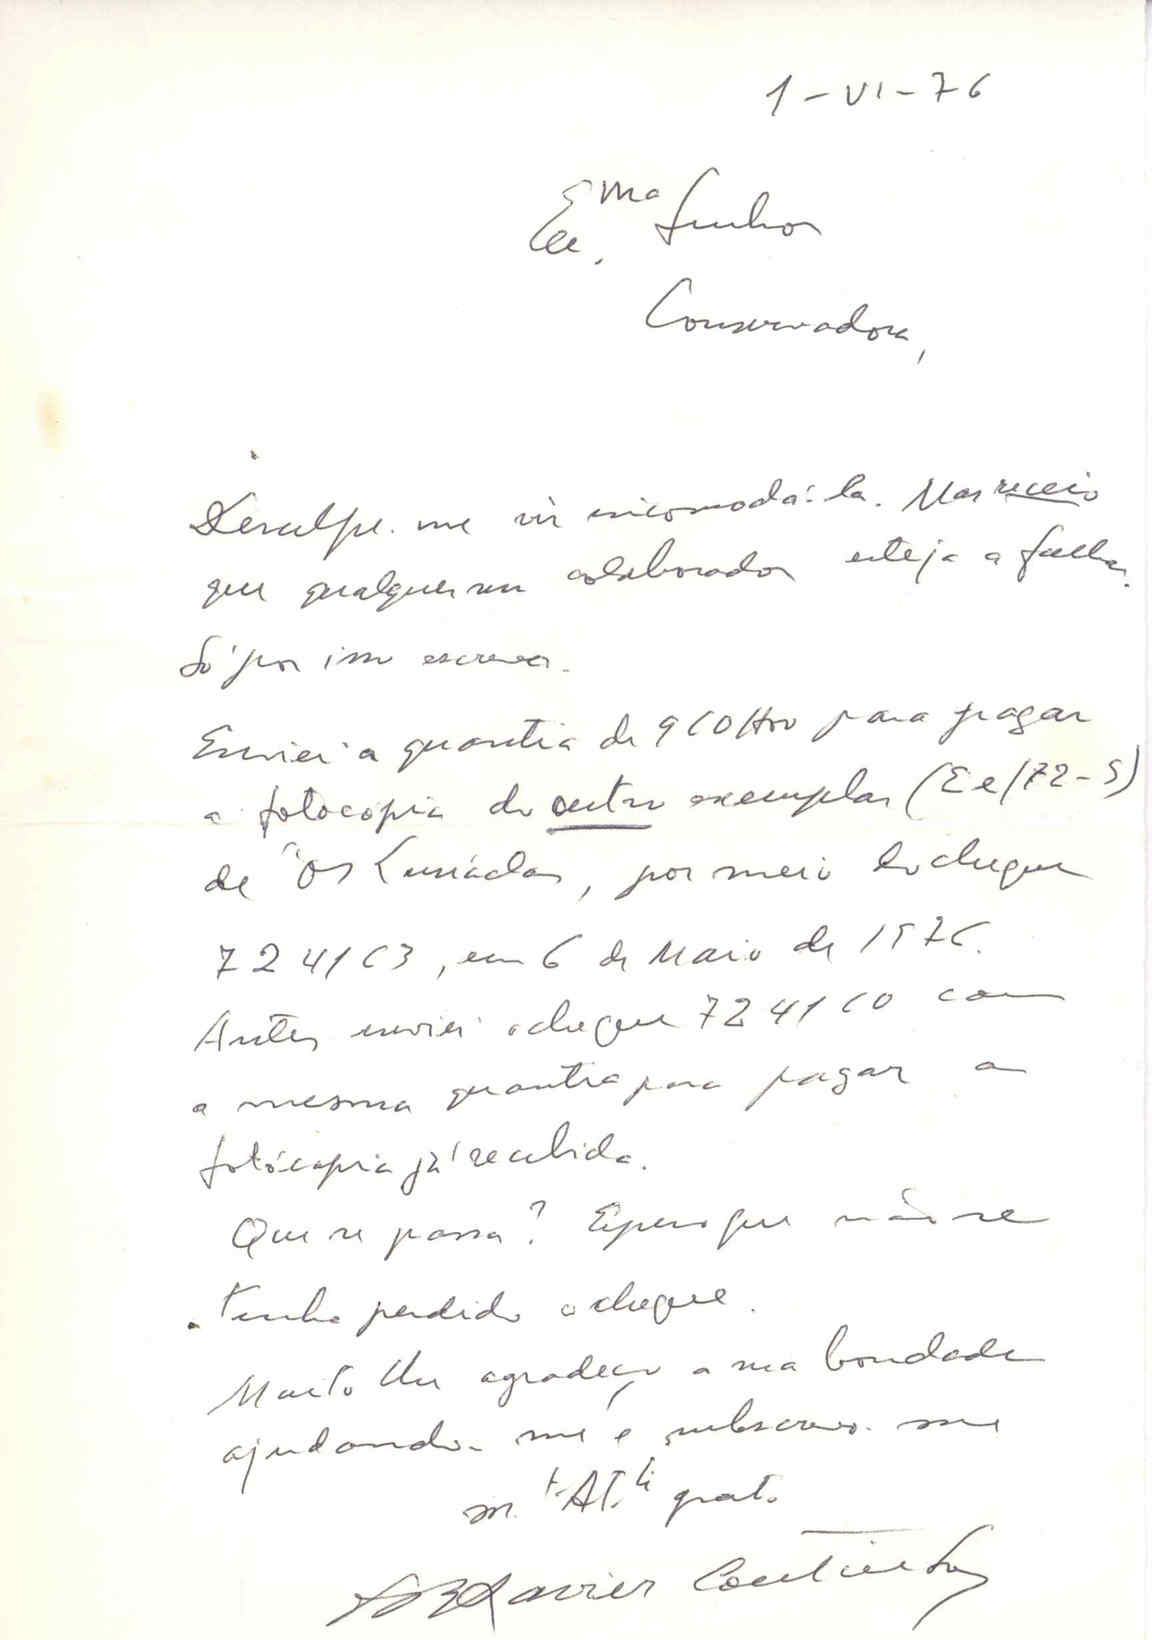 1-VI-76
Ex.ma Senhora
Conservadora,
Desculpe-me vir incomodá-la. Mas receio
que qualquer seu colaborador esteja a falhar.
Só por isso escrevo.
Enviei a quantia de para pagar
a fotocopia do outro exemplar
de "Os Lusíadas, por meio do cheque
724163, em 6 de Maio de 1976.
Antes enviei o cheque 724160 com
a mesma quantia para pagar a
fotócopia já recebida.
Que se passa? Espero que não se
tenha perdido o cheque.
Muito lhe agradeço a sua bondade
ajudando-me e subscrevo-me
m.to At.te grato
Xavier Coutinho